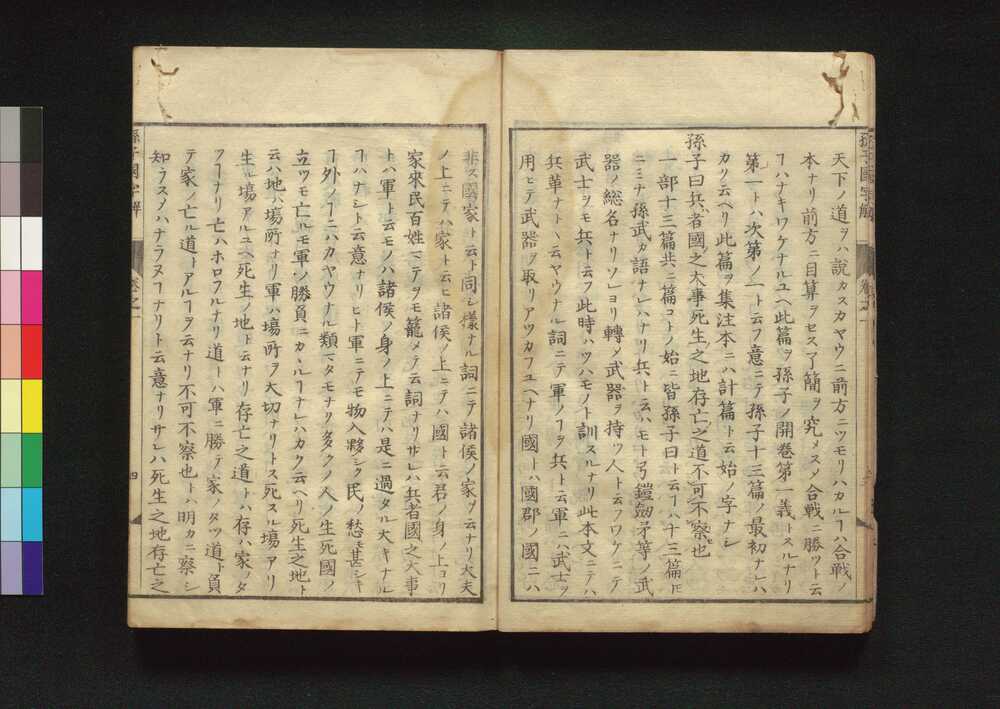 孫子國字解
卷之一
天下ノ道ヲハ說カスカヤウニ前方ニツモリハカルヿハ合戰ノ
本ナリ前方ニ目算ヲセスヿ簡ヲ究メスメ合戰ニ勝ツト云
ヿハナキワケナルユヘ此篇ヲ孫子ノ開卷第一義トスルナリ
第一トハ次第ノ一ト云フ意ニテ孫子十三篇ノ最初ナレハ
カク云ヘリ此篇ヲ集注本ニハ計篇ト云始ノ字ナシ
孫子曰兵者國之大事死生之地存亡之道不可不察也
一部十三篇共ニ篇コトノ始ニ皆孫子曰ト云ヿハ十三篇𪜈
ニミナ孫武カ語ナレハナリ兵ト云ハモト弓鎧劔矛等ノ武
器ノ總名ナリソレヨリ轉メ武器ヲ持ツ人ト云フワケニテ
武士ヲモ兵ト云フ此時ハツハモノト訓スルナリ此本文ニテハ
兵革ナトヽ云ヤウナル詞ニテ軍ノヿヲ兵ト云軍ニハ武士ヲ
用ヒテ武器ヲ取リアツカフユヘナリ國トハ國郡ノ國ニハ
非ス國家ト云ト同シ樣ナル詞ニテ諸侯ノ家ヲ云ナリ大夫
ノ上ニテハ家ト云ヒ諸侯ノ上ニテハ國ト云君ノ身ノ上ヨリ
家來民百姓マテヲモ籠メテ云詞ナリサレハ兵者國之大事
トハ軍ト云モノハ諸侯ノ身ノ上ニテハ是ニ過タル大キナル
ヿハナシト云意ナリヒト軍ニテモ物入夥シク民ノ愁モ甚シキ
ヿ外ノヿニハカヤウナル類マタモナリ多クノ人ノ生死國ノ
立ツモ亡ルモ軍ノ勝負ニカヽルヿナレハカク云ヘリ死生之地ト
云ハ地ハ塲所ナリ軍ハ塲所ヲ大切ナリトス死スル塲アリ
生ル塲アルユヘ死生ノ地ト云ナリ存亡之道トハ存ハ家ノタ
ツヿナリ亡ハホロフルナリ道トハ軍ニ勝テ家ノタツ道ト負
テ家ノ亡ル道トアルヿヲ云ナリ不可不察也トハ明カニ察シ
知ラスメハナラヌヿナリト云意ナリサレハ死生之地存亡之
孫子國字解
卷之一
四